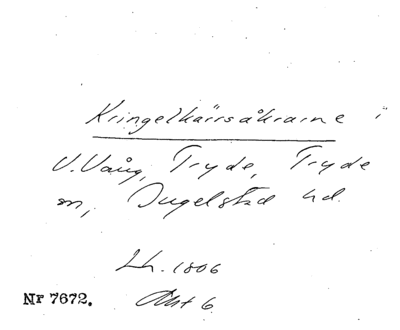 Kringelkärrsåkrarne i
V. Vång, Tryde, Tryde
sn, Ingelstad hd.
Lh. 1806
Akt 6
Nr 7672.